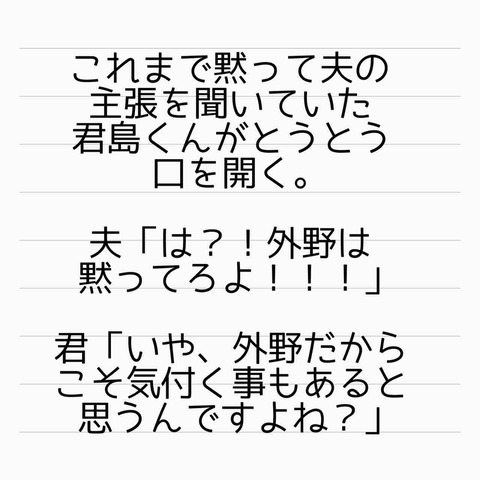 これまで黙って夫の
主張を聞いていた
君島くんがとうとう
口を開く。
夫「は？！外野は
黙ってろよ！！！」
君「いや、外野だから
こそ気付く事もあると
思うんですよね？」